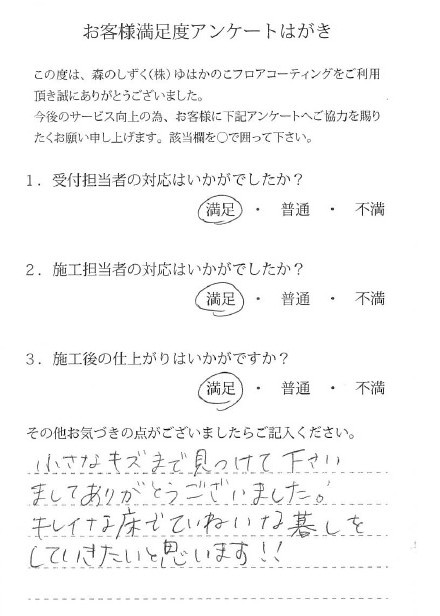 お客様満足度アンケートはがき
この度は、森のしずく(株)ゆはかのこフロアコーティングをご利用
頂き誠にありがとうございました。
今後のサービス向上の為、お客様に下記アンケートへご協力を賜り
たくお願い申し上げます。該当欄を〇で囲って下さい。
1．受付担当者の対応はいかがでしたか？
満足 ・ 普通 ・ 不満
2．施工担当者の対応はいかがでしたか？
満足 ・ 普通 ・ 不満
3．施工後の仕上がりはいかがですか？
満足 ・ 普通 ・ 不満
その他お気づきの点がございましたらご記入ください。
小さなキズまで見つけて下さい
ましてありがとうございました。
キレイな床でていねいな暮しを
していきたいと思います!!